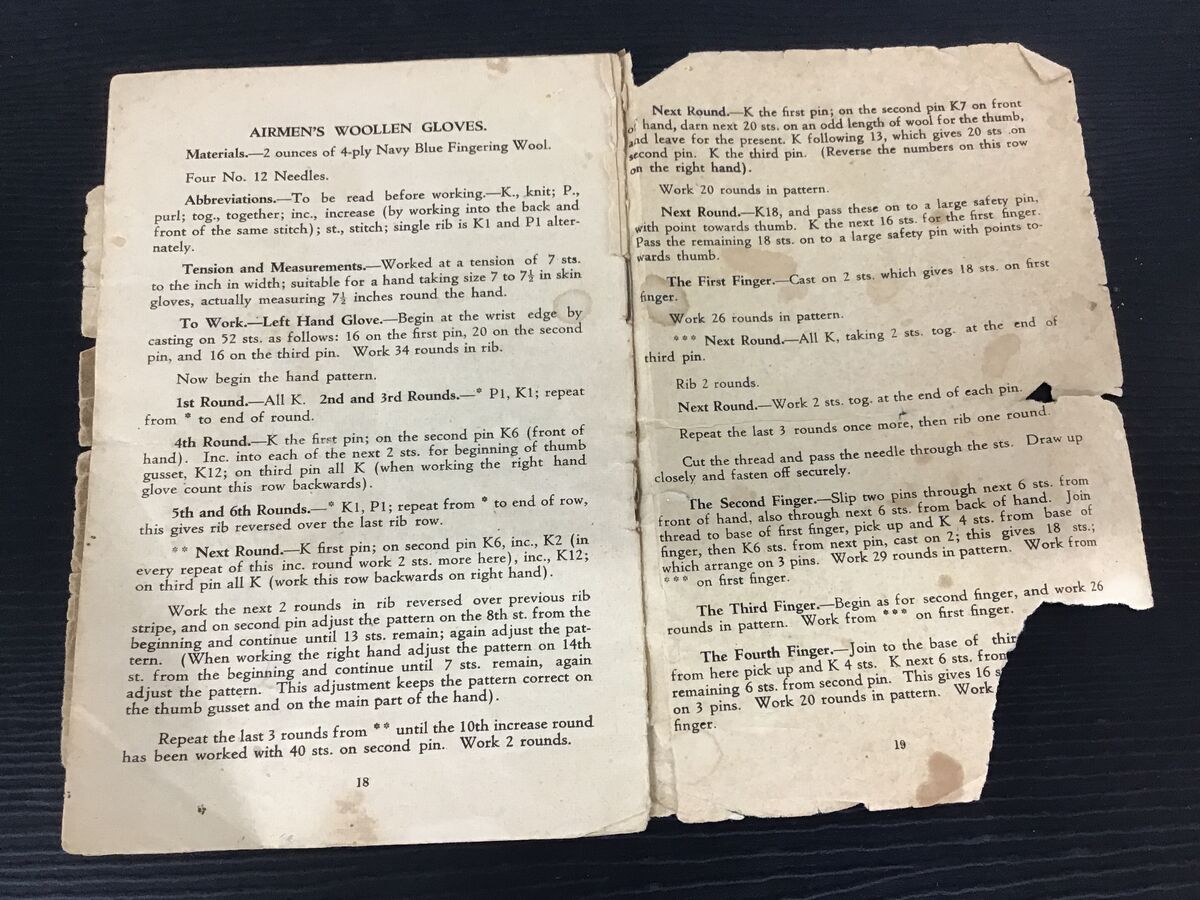 AIRMEN'S WOOLLEN GLOVES.
Materials.—2 ounces of 4-ply Navy Blue Fingering Wool.
Four No. 12 Needles.
Abbreviations.—To be read before working.—K., knit; P.,
purl; tog., together; inc., increase (by working into the back and
front of the same stitch); st., stitch; single rib is K1 and P1 alter-
nately.
Tension and Measurements.—Worked at a tension of 7 sts.
to the inch in width; suitable for a hand taking size 7 to 7½ in skin
gloves, actually measuring 7½ inches round the hand.
To Work.—Left Hand Glove.—Begin at the wrist edge by
casting on 52 sts. as follows: 16 on the first pin, 20 on the second
pin, and 16 on the third pin. Work 34 rounds in rib.
Now begin the hand pattern.
1st Round.—All K. 2nd and 3rd Rounds.—* P1, K1; repeat
from * to end of round.
4th Round.—K the first pin; on the second pin K6 (front of
hand). Inc. into each of the next 2 sts. for beginning of thumb
gusset, K12; on third pin all K (when working the right hand
glove count this row backwards).
5th and 6th Rounds.—* K1, P1; repeat from * to end of row,
this gives rib reversed over the last rib row.
** Next Round.—K first pin; on second pin K6, inc., K2 (in
every repeat of this inc. round work 2 sts. more here), inc., K12;
on third pin all K (work this row backwards on right hand).
Work the next 2 rounds in rib reversed over previous rib
stripe, and on second pin adjust the pattern on the 8th st. from the
beginning and continue until 13 sts. remain; again adjust the pat-
tern. (When working the right hand adjust the pattern on 14th
st. from the beginning and continue until 7 sts. remain, again
adjust the pattern. This adjustment keeps the pattern correct on
the thumb gusset and on the main part of the hand).
Repeat the last 3 rounds from ** until the 10th increase round
has been worked with 40 sts. on second pin. Work 2 rounds.
18
Next Round.—K the first pin; on the second pin K7 on front
of hand, darn next 20 sts. on an odd length of wool for the thumb,
and leave for the present. K following 13, which gives 20 sts .on
second pin. K the third pin. (Reverse the numbers on this row
on the right hand).
Work 20 rounds in pattern.
Next Round.—K18, and pass these on to a large safety pin,
with point towards thumb. K the next 16 sts. for the first finger.
Pass the remaining 18 sts. on to a large safety pin with points to-
wards thumb.
The First Finger.—Cast on 2 sts. which gives 18 sts. on first
finger.
Work 26 rounds in pattern.
*** Next Round.—All K, taking 2 sts. tog. at the end of
third pin.
Rib 2 rounds.
Next Round.—Work 2 sts. tog. at the end of each pin.
Repeat the last 3 rounds once more, then rib one round.
Cut the thread and pass the needle through the sts. Draw up
closely and fasten off securely.
The Second Finger.—Slip two pins through next 6 sts. from
front of hand, also through next 6 sts. from back of hand. Join
thread to base of first finger, pick up and K 4 sts. from base of
finger, then K6 sts. from next pin, cast on 2; this gives 18 sts.;
which arrange on 3 pins. Work 29 rounds in pattern. Work from
*** on first finger.
The Third Finger.—Begin as for second finger, and work 26
rounds in pattern. Work from *** on first finger.
The Fourth Finger.—Join to the base of thir
from here pick up and K 4 sts. K next 6 sts. from
remaining 6 sts. from second pin. This gives 16 s
on 3 pins. Work 20 rounds in pattern. Work
finger.
19